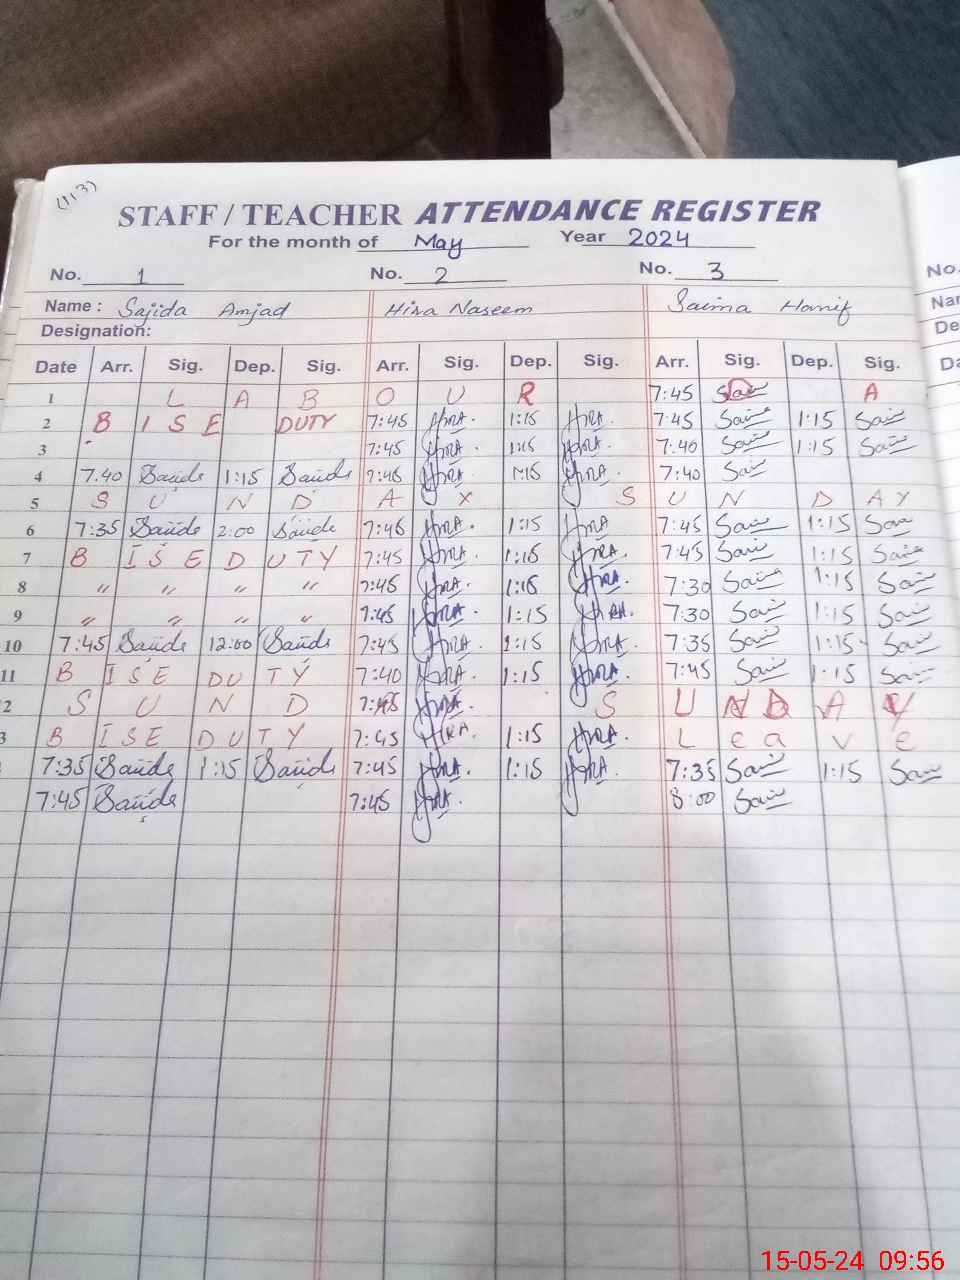 (113)
STAFF / TEACHER ATTENDANCE REGISTER
For the month of May Year 2024
No. 1 No. 2 No. 3 No.
Name : Sajida Amjad Hira Naseem Saima Hanif
Designation:
Date Arr. Sig. Dep. Sig. Arr. Sig. Dep. Sig. Arr. Sig. Dep. Sig.
1 L A B O U R 7:45 A
2 B I S E DUTY 7:45 HIRA. 1:15 HIRA. 7:45 Sai 1:15 Sai
3 7:45 HIRA. 1:15 HIRA. 7:40 Sai 1:15 Sai
4 7.40 Sajida 1:15 Sajida 7:45 HIRA. 1:15 HIRA. 7:40 Sai
5 S U N D A Y S U N D A Y
6 7:35 Sajida 2:00 Sajida 7:45 HIRA. 1:15 HIRA 7:45 Sai 1:15 Sai
7 B I S E D U T Y 7:45 HIRA. 1:15 HIRA. 7:45 Sai 1:15 Sai
8 " " " " 7:45 HIRA. 1:15 HIRA. 7:30 Sai 1:15 Sai
9 " " " " 7:45 HIRA. 1:15 HIRA. 7:30 Sai 1:15 Sai
10 7:45 Sajida 12:00 Sajida 7:45 HIRA. 1:15 HIRA. 7:35 Sai 1:15 Sai
11 B I S E D U T Y 7:40 HIRA. 1:15 HIRA. 7:45 Sai 1:15 Sai
2 S U N D HIRA. S U N D A Y
3 B I S E D U T Y 7:45 HIRA. 1:15 HIRA. L e a v e
7:35 Sajida 1:15 Sajida 7:45 HIRA. 1:15 HIRA. 7:35 Sai 1:15 Sai
7:45 Sajida 7:45 HIRA. 8:00 Sai
15-05-24 09:56